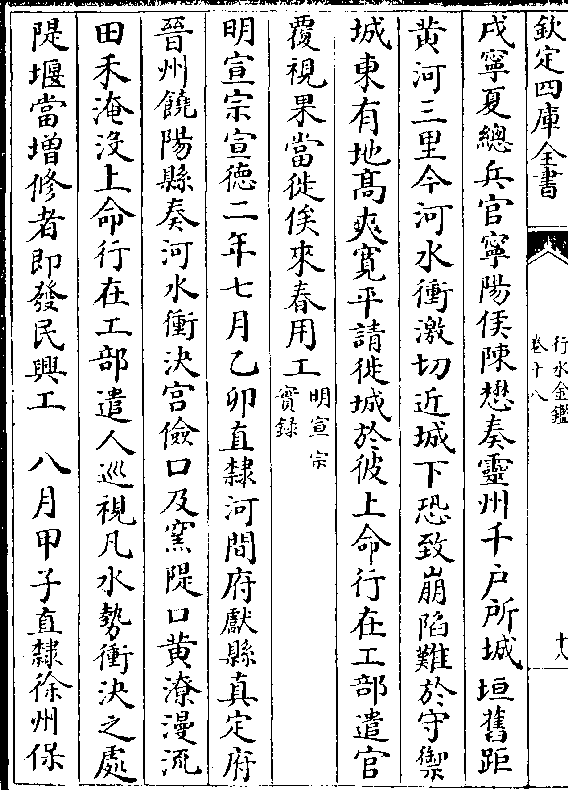 欽定四庫全書
行水金鑑
卷十八
十八
戌寧夏總兵官寧陽侯陳懋奏靈州千户所城垣舊距
黄河三里今河水衝激切近城下恐致崩陷難於守禦
城東有地髙爽寛平請徙城於彼上命行在工部遣官
覆視果當徙俟來春用工明宣宗
實録
明宣宗宣德二年七月乙卯直隸河間府獻縣真定府
晉州饒陽縣奏河水衝決宫儉口及窯隄口黄潦漫流
田禾淹沒上命行在工部遣人巡視凡水勢衝決之處
隄堰當增修者即發民興工　八月甲子直隸徐州保